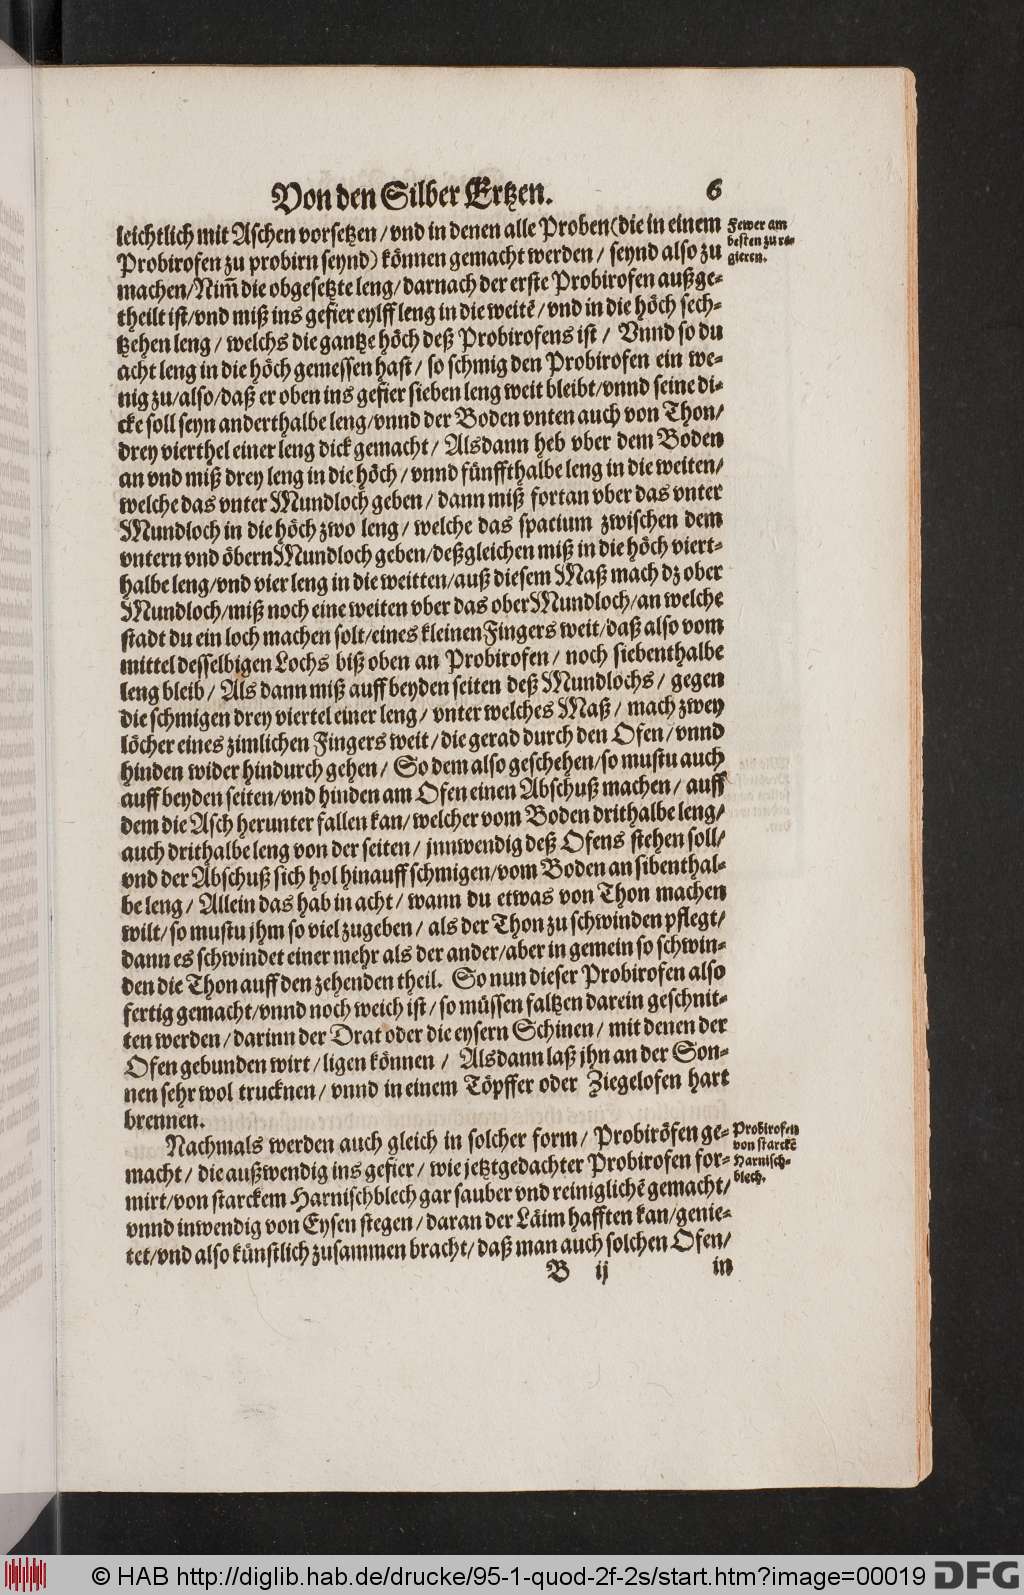 Von den Silber Ertzen. 6
leichtlich mit Aschen vorsetzen / vnd in denen alle Proben (die in einem
Probirofen zu probirn seynd) können gemacht werden / seynd also zu
machen / Nim̃ die obgesetzte leng / darnach der erste Probirofen außge-
theilt ist / vnd miß ins gefier eylff leng in die weitẽ / vnd in die höch sech-
tzehen leng / welchs die gantze höch deß Probirofens ist / Vnnd so du
acht leng in die höch gemessen hast / so schmig den Probirofen ein we-
nig zu / also / daß er oben ins gefier sieben leng weit bleibt / vnnd seine di-
cke soll seyn anderthalbe leng / vnnd der Boden vnten auch von Thon /
drey vierthel einer leng dick gemacht / Alsdann heb vber dem Boden
an vnd miß drey leng in die höch / vnnd fünffthalbe leng in die weiten /
welche das vnter Mundloch geben / dann miß fortan vber das vnter
Mundloch in die höch zwo leng / welche das spatium zwischen dem
vntern vnd öbern Mundloch geben / deßgleichen miß in die höch viert-
halbe leng / vnd vier leng in die weitten / auß diesem Maß mach dz ober
Mundloch / miß noch eine weiten vber das ober Mundloch / an welche
stadt du ein loch machen solt / eines kleinen Fingers weit / daß also vom
mittel desselbigen Lochs biß oben an Probirofen / noch siebenthalbe
leng bleib / Als dann miß auff beyden seiten deß Mundlochs / gegen
die schmigen drey viertel einer leng / vnter welches Maß / mach zwey
löcher eines zimlichen Fingers weit / die gerad durch den Ofen / vnnd
hinden wider hindurch gehen / So dem also geschehen / so mustu auch
auff beyden seiten / vnd hinden am Ofen einen Abschuß machen / auff
dem die Asch herunter fallen kan / welcher vom Boden drithalbe leng /
auch drithalbe leng von der seiten / jnnwendig deß Ofens stehen soll /
vnd der Abschuß sich hol hinauff schmigen / vom Boden an sibenthal-
be leng / Allein das hab in acht / wann du etwas von Thon machen
wilt / so mustu jhm so viel zugeben / als der Thon zu schwinden pflegt /
dann es schwindet einer mehr als der ander / aber in gemein so schwin-
den die Thon auff den zehenden theil. So nun dieser Probirofen also
fertig gemacht / vnnd noch weich ist / so müssen faltzen darein geschnit-
ten werden / darinn der Drat oder die eysern Schinen / mit denen der
Ofen gebunden wirt / ligen können / Alsdann laß jhn an der Son-
nen sehr wol trucknen / vnnd in einem Töpffer oder Ziegelofen hart
brennen.
Nachmals werden auch gleich in solcher form / Probiröfen ge-
macht / die außwendig ins gefier / wie jetztgedachter Probirofen for-
mirt / von starckem Harnischblech gar sauber vnd reiniglichẽ gemacht /
vnnd inwendig von Eysen stegen / daran der Läim hafften kan / genie-
tet / vnd also künstlich zusammen bracht / daß man auch solchen Ofen /
B ij in
Fewer am
besten zu re-
gieren.
Probirofen
von starckẽ
Harnisch-
blech.
© HAB http://diglib.hab.de/drucke/95-1-quod-2f-2s/start.htm?image=00019 DFG